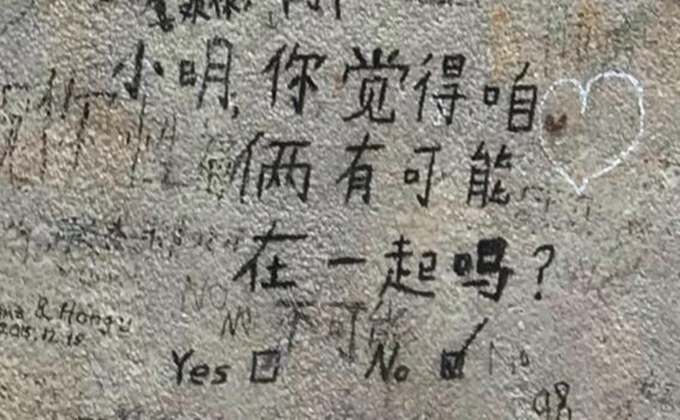 小明,你觉得咱
俩有可能
在一起吗?
NO
NO 不可能
Yes No No
& Hongy
2015.12.19
98